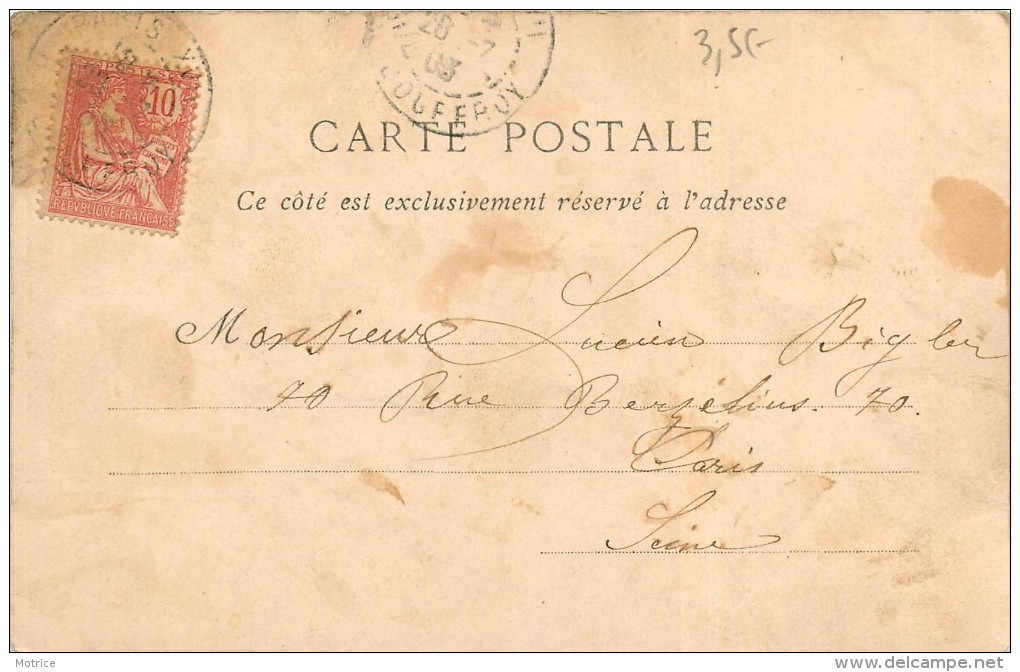 3,50-
PARIS XVII
28
03
JOUFFROY
POSTES
10
REPUBLIQUE FRANÇAISE
CARTE POSTALE
Ce côté est exclusivement réservé à l'adresse
Monsieur Lucien Bigler
70 Rue Berzélius. 70.
Paris
Seine
Motrice
www.delcampe.net